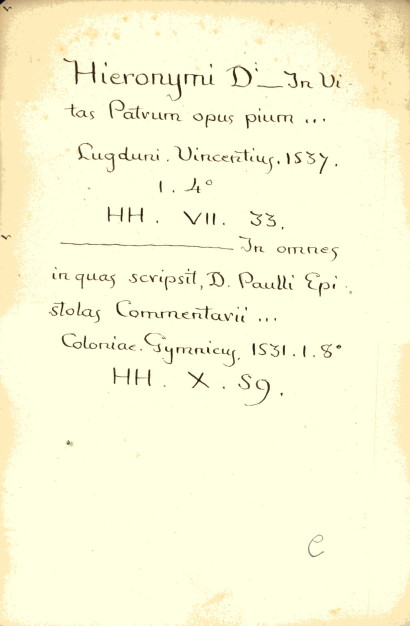 Hieronymi Di — In Vi-
tas Patrum opus pium ...
Lugduni. Vincentius. 1537.
1. 4°
HH. VII. 33.
———— In omnes
in quas scripsit, D. Paulli Epi-
stolas Commentarii ...
Coloniae. Gymnicus. 1531. 1. 8°
HH. X. 59.
C